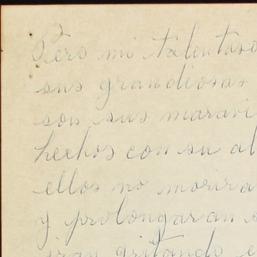 Pero mi talentoso
sus grandiosas
son sus maravi
hechos con su al
ellos no morira
y prolongaran
iran gritando e